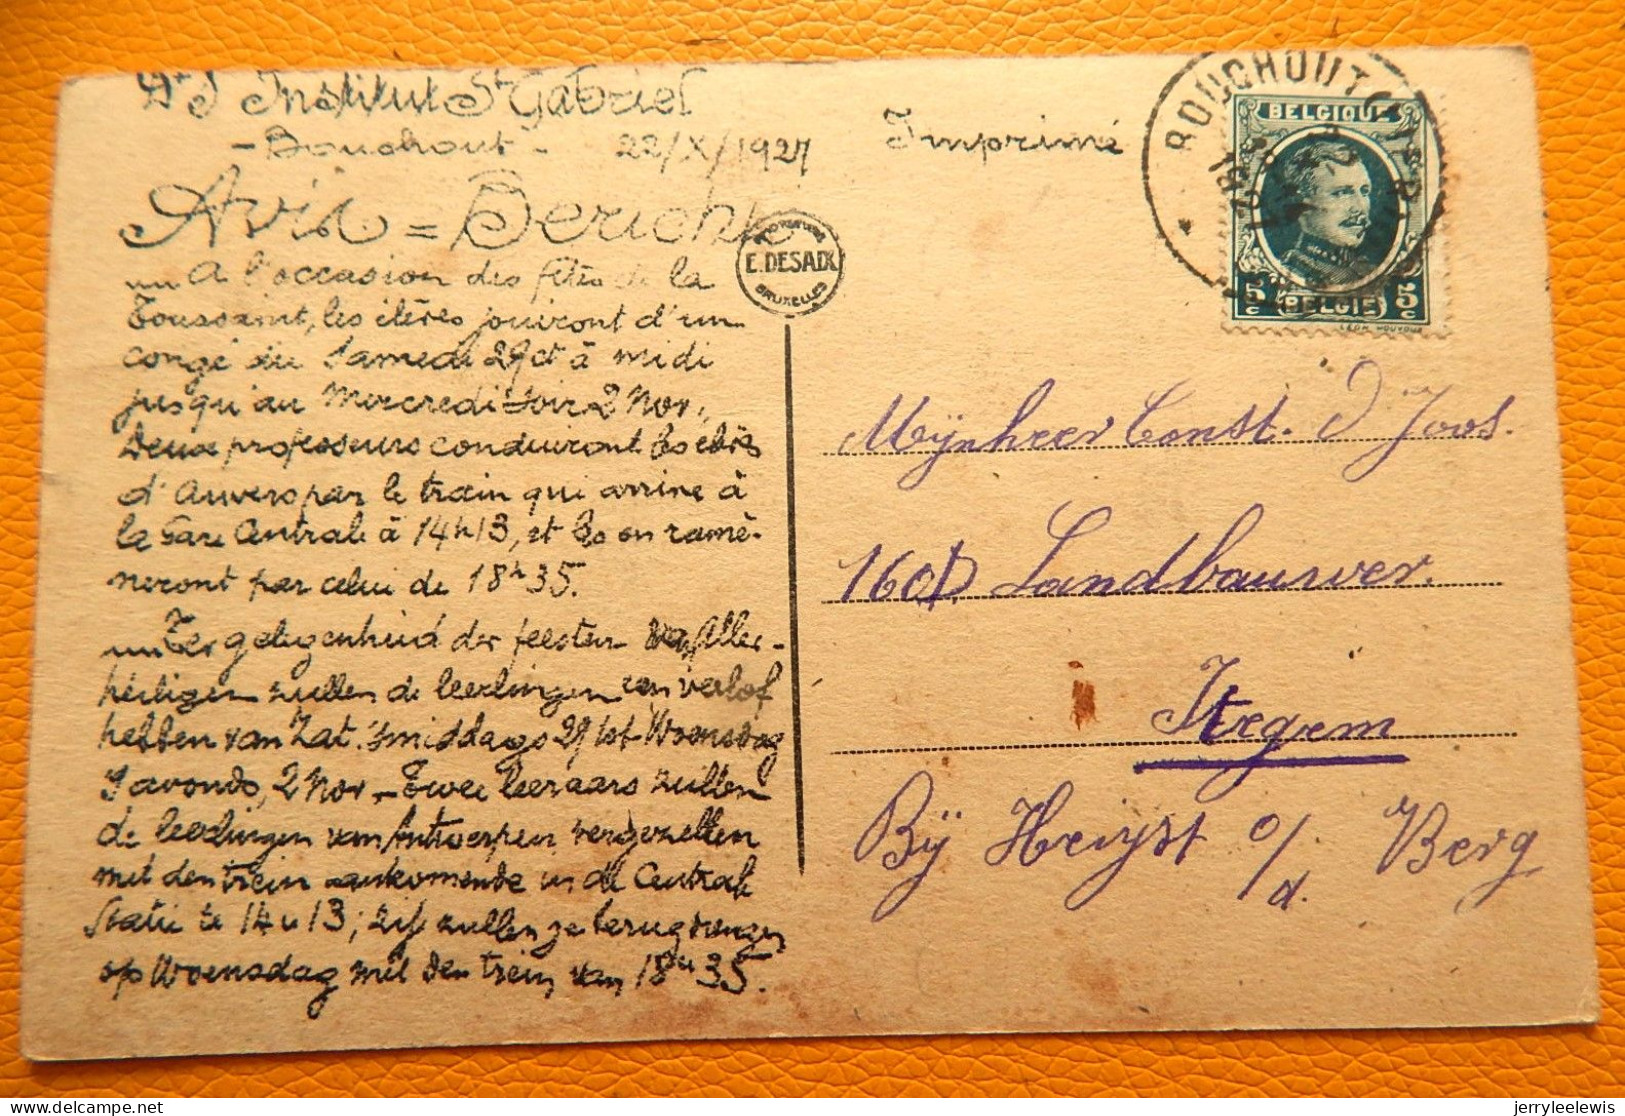 Institut St Gabriel
- Bouchout - 22/X/1927
Avis = Bericht
A l'occasion des fêtes de la
Toussaint, les élèves jouiront d'un
congé du Samedi 29 ct à midi
jusqu'au Mercredi soir 2 Nov.
Deux professeurs conduiront les élèves
d'Anvers par le train qui arrive à
la Gare Centrale à 14h13, et les en ramè-
neront par celui de 18h35.
Ter gelegenheid der feesten van Aller-
heiligen zullen de leerlingen een verlof
hebben van Zat. 's middags 29 tot Woensdag
's avonds, 2 Nov. - Twee leeraars zullen
de leerlingen van Antwerpen vergezellen
met den trein aankomende in de Centrale
Statie te 14 u 13; zij zullen ze terugbrengen
op Woensdag met den trein van 18u 35.
E. DESAIX
BRUXELLES
Imprimé
BOUCHOUT
BELGIQUE
5c BELGIË 5c
Mijnheer Const. D' Joos.
160D. Landbouwer.
Itegem
Bij Heijst o/d. Berg
jerryleelewis